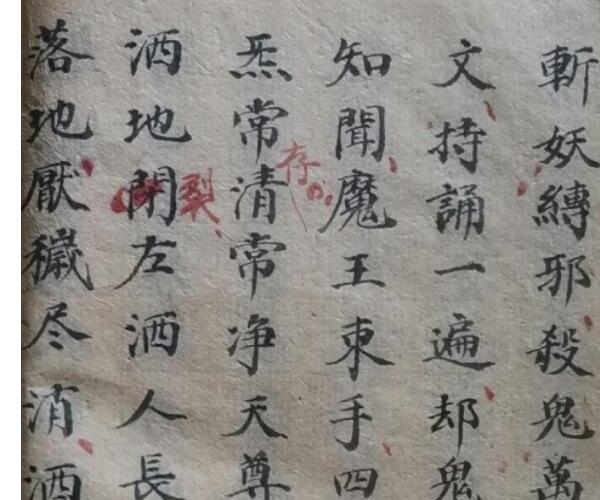 斬妖縛邪殺鬼萬
文持誦一遍却鬼
知聞魔王束手四
炁常清常净天尊
存
洒地閉左洒人長
裂
落地厭穢尽消洒